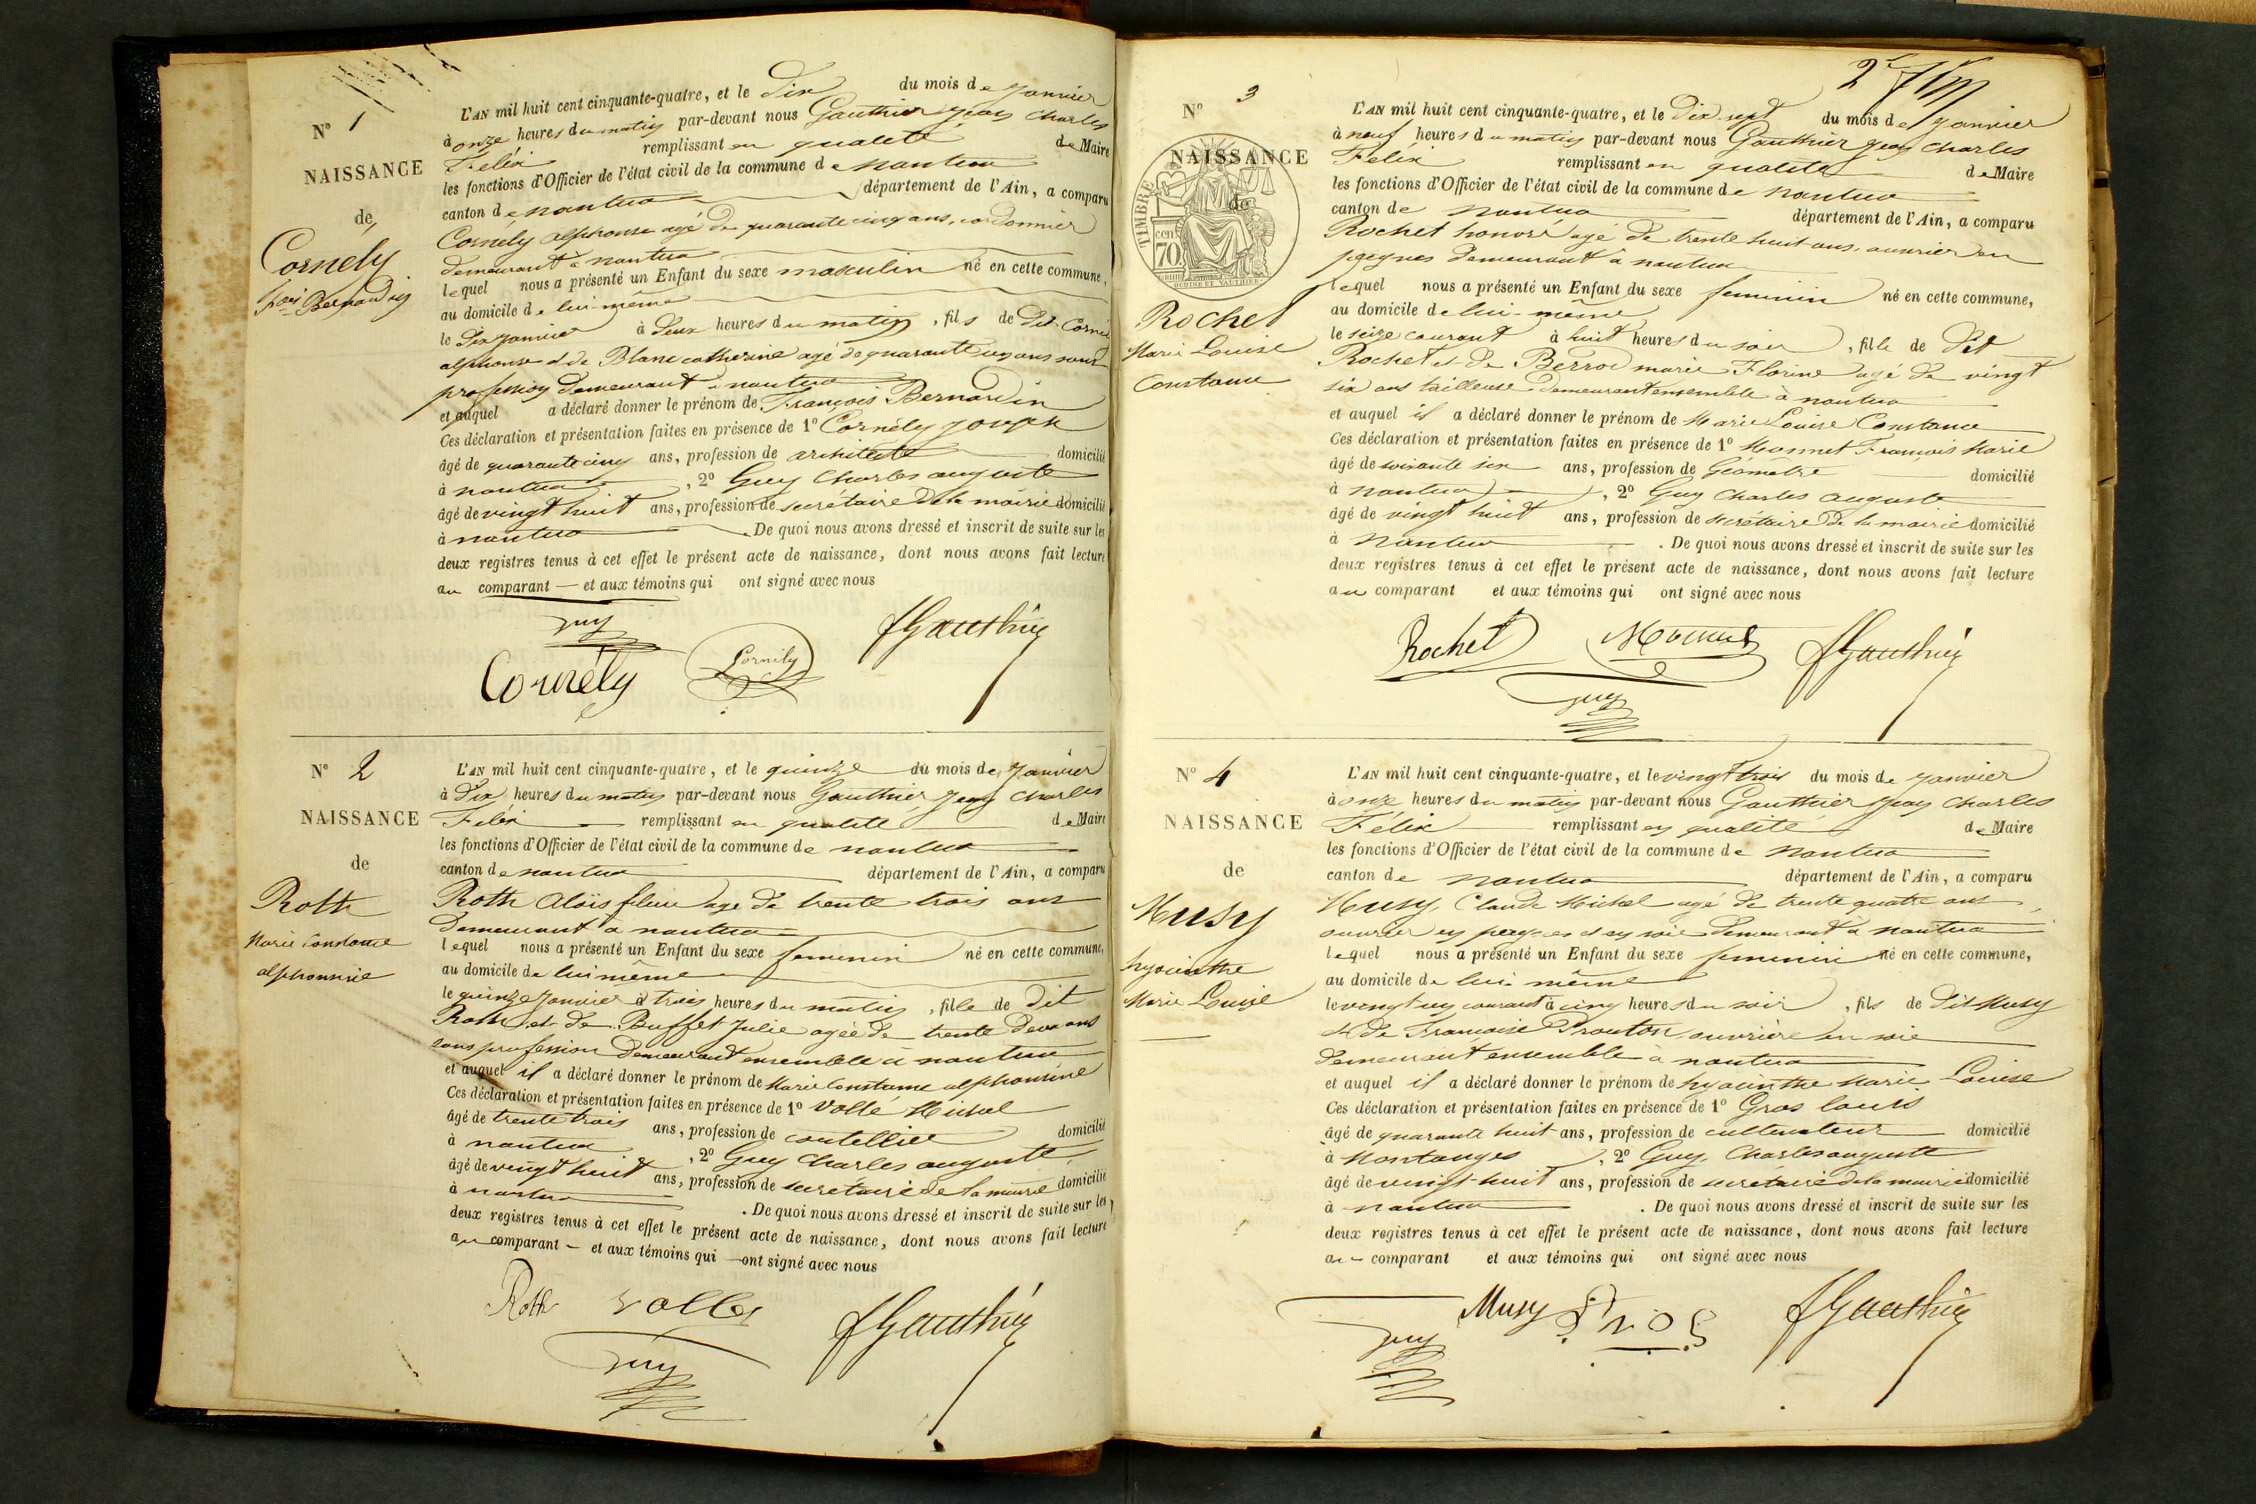 N° 1
NAISSANCE
de
Cornély
fois Bernardin
L'AN mil huit cent cinquante-quatre, et le dix du mois de janvier
à onze heures du matin par-devant nous Gauthier jean charles
Félix remplissant en qualité de Maire
les fonctions d'Officier de l'état civil de la commune de nantua
canton de nantua département de l'Ain, a comparu
Cornély alphonse agé de quarante cinq ans, cordonnier
demeurant a nantua
lequel nous a présenté un Enfant du sexe masculin né en cette commune,
au domicile de lui-même
le dix janvier à deux heures du matin, fils de dit Cornély
alphonse et de Blanc catherine agé de quarante un ans sans
profession demeurant a nantua
et auquel a déclaré donner le prénom de François Bernardin
Ces déclaration et présentation faites en présence de 1° Cornély joseph
âgé de quarante cinq ans, profession de architecte domicilié
à nantua, 2° Guy Charles auguste
âgé de vingt huit ans, profession de secrétaire de la mairie domicilié
à nantua. De quoi nous avons dressé et inscrit de suite sur les
deux registres tenus à cet effet le présent acte de naissance, dont nous avons fait lecture
au comparant — et aux témoins qui ont signé avec nous
guy
Cornély Cornély fGauthier
N° 2
NAISSANCE
de
Roth
Marie Constance
alphonsine
L'AN mil huit cent cinquante-quatre, et le quinze du mois de janvier
à dix heures du matin par-devant nous Gauthier jean charles
Félix remplissant en qualité de Maire
les fonctions d'Officier de l'état civil de la commune de nantua
canton de nantua département de l'Ain, a comparu
Roth Aloïs age de trente trois ans
demeurant à nantua
lequel nous a présenté un Enfant du sexe feminin né en cette commune,
au domicile de lui même
le quinze janvier à trois heures du matin, fille de dit
Roth et de Buffet Julie agée de trente deux ans
sans profession demeurant ensemble à nantua
et auquel il a déclaré donner le prénom de Marie Constance alphonsine
Ces déclaration et présentation faites en présence de 1° Vollé Michel
âgé de trente trois ans, profession de coutellier domicilié
à nantua, 2° Guy Charles auguste,
âgé de vingt huit ans, profession de secrétaire de la mairie domicilié
à nantua. De quoi nous avons dressé et inscrit de suite sur les
deux registres tenus à cet effet le présent acte de naissance, dont nous avons fait lecture
au comparant — et aux témoins qui — ont signé avec nous
Roth fGauthier
guy
2e
N° 3
NAISSANCE
de
TIMBRE
cen
70
Rochet
Marie Louise
Constance
L'AN mil huit cent cinquante-quatre, et le dix sept du mois de janvier
à neuf heures du matin par-devant nous Gauthier jean charles
Félix remplissant en qualité de Maire
les fonctions d'Officier de l'état civil de la commune de nantua
canton de nantua département de l'Ain, a comparu
Rochet honoré agé de trente huit ans, ouvrier en
peignes demeurant a nantua
lequel nous a présenté un Enfant du sexe feminin né en cette commune,
au domicile de lui-même
le seize courant à huit heures du soir, fille de dit
Rochet et de Berrod marie Florine agé de vingt
six ans tailleuse demeurant ensemble à nantua
et auquel il a déclaré donner le prénom de Marie Louise Constance
Ces déclaration et présentation faites en présence de 1° Monnet François Marie
âgé de soixante six ans, profession de Géomètre domicilié
à nantua, 2° Guy Charles auguste
âgé de vingt huit ans, profession de secrétaire de la mairie domicilié
à nantua. De quoi nous avons dressé et inscrit de suite sur les
deux registres tenus à cet effet le présent acte de naissance, dont nous avons fait lecture
au comparant et aux témoins qui ont signé avec nous
Rochet Monnet fGauthier
guy
N° 4
NAISSANCE
de
Musy
hyacinthe
Marie Louise
L'AN mil huit cent cinquante-quatre, et le vingt trois du mois de janvier
à onze heures du matin par-devant nous Gauthier jean charles
Félix remplissant en qualité de Maire
les fonctions d'Officier de l'état civil de la commune de nantua
canton de nantua département de l'Ain, a comparu
Musy, Claude Michel agé de trente quatre ans,
ouvrier en peignes et en soie demeurant à nantua
lequel nous a présenté un Enfant du sexe feminin né en cette commune,
au domicile de lui même
le vingt un courant à cinq heures du soir, fils de dit Musy
et de Françoise Prouton ouvrière en soie
demeurant ensemble à nantua
et auquel il a déclaré donner le prénom de hyacinthe Marie Louise
Ces déclaration et présentation faites en présence de 1° Gros louis
âgé de quarante huit ans, profession de cultivateur domicilié
à Montanges, 2° Guy, Charles auguste
âgé de vingt-huit ans, profession de secrétaire de la mairie domicilié
à nantua. De quoi nous avons dressé et inscrit de suite sur les
deux registres tenus à cet effet le présent acte de naissance, dont nous avons fait lecture
au comparant et aux témoins qui ont signé avec nous
Musy gros fGauthier
guy